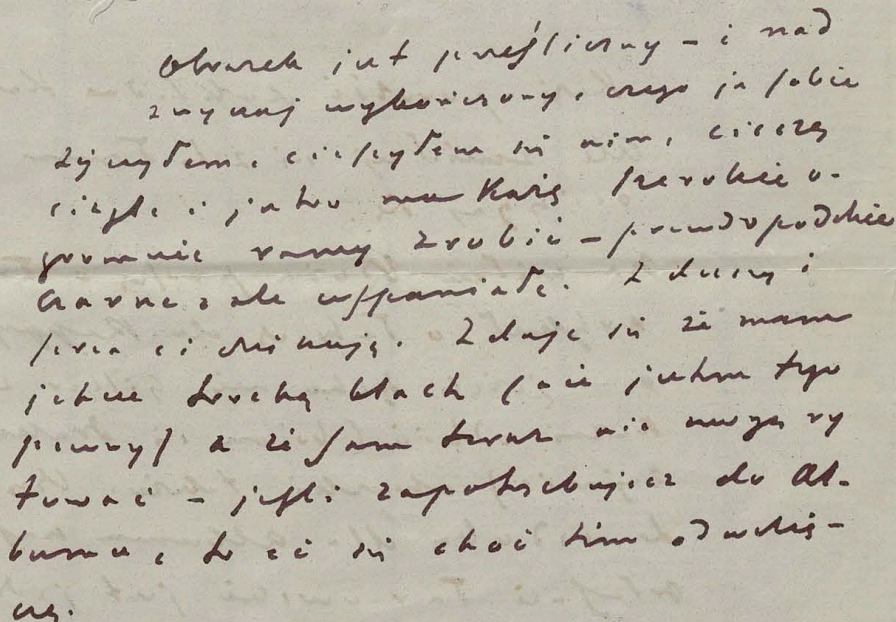 Obrazek jest prześliczny – i nad
zwyczaj wykończony, czego ja sobie
życzyłem, cieszyłem się nim, cieszę
ciągle i jutro mu każę szerokie o-
gromnie ramy zrobić – prawdopodobnie
czarne, ale wspaniałe. Z duszy i
serca ci dziękuję. Zdaje się że mam
jeszcze trochę blach (nie jestem tego
pewny) a że sam teraz nie mogę ry
tować – jeśli zapotrzebujesz do Al-
bumu, to ci się choć tem odwdzię-
czę.